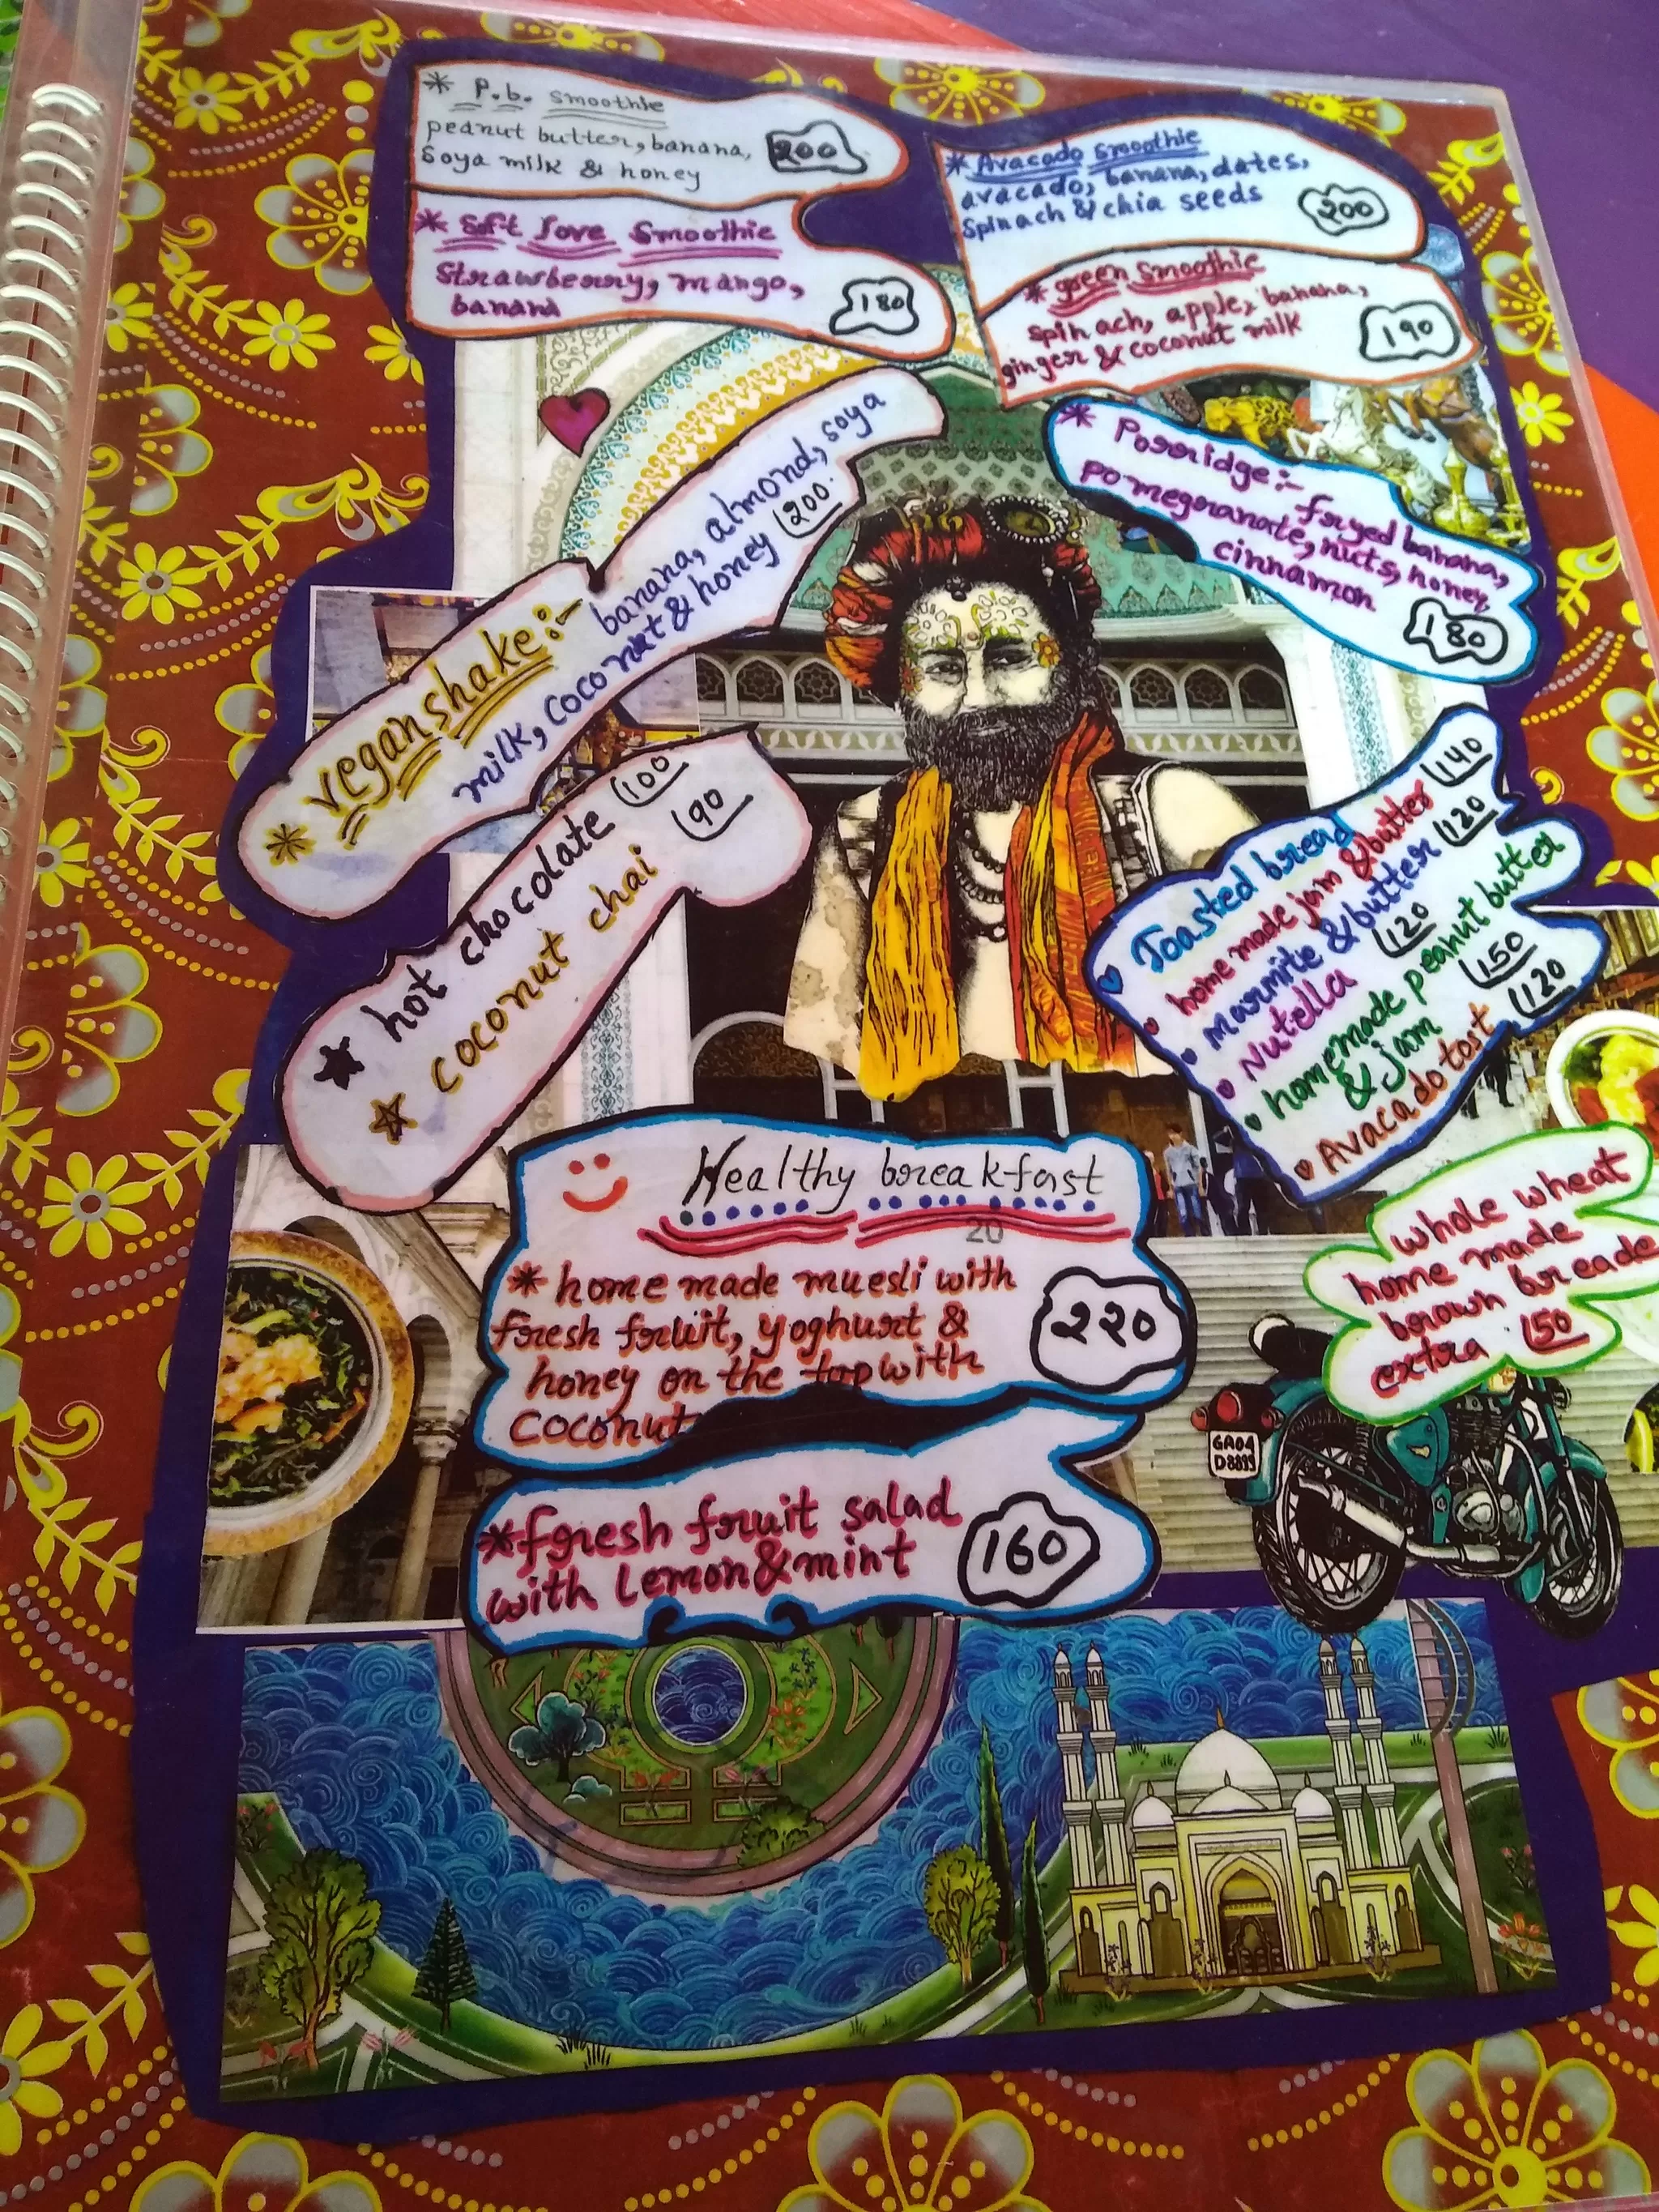 * P.b. smoothie
peanut butter, banana,
Soya milk & honey
200
* Soft love Smoothie
Strawberry, mango,
banana
180
* Avacado smoothie
avacado, banana, dates,
Spinach & chia seeds
200
* green smoothie
spinach, apple, banana,
ginger & coconut milk
190
* vegan shake:- banana, almond, soya
milk, coconut & honey 200.
* Porridge:- fryed banana,
pomegranate, nuts, honey,
cinnamon
180
hot chocolate 100
coconut chai 90
Toasted bread
home made jam & butter 140
marmite & butter 120
Nutella 120
homemade peanut butter
& jam 150
Avacado tost 120
Healthy breakfast
20
* home made muesli with
fresh fruit, yoghurt &
honey on the top with
coconut
220
* fresh fruit salad
with Lemon & mint
160
whole wheat
home made
brown breade
extra 50
GA04
D8899